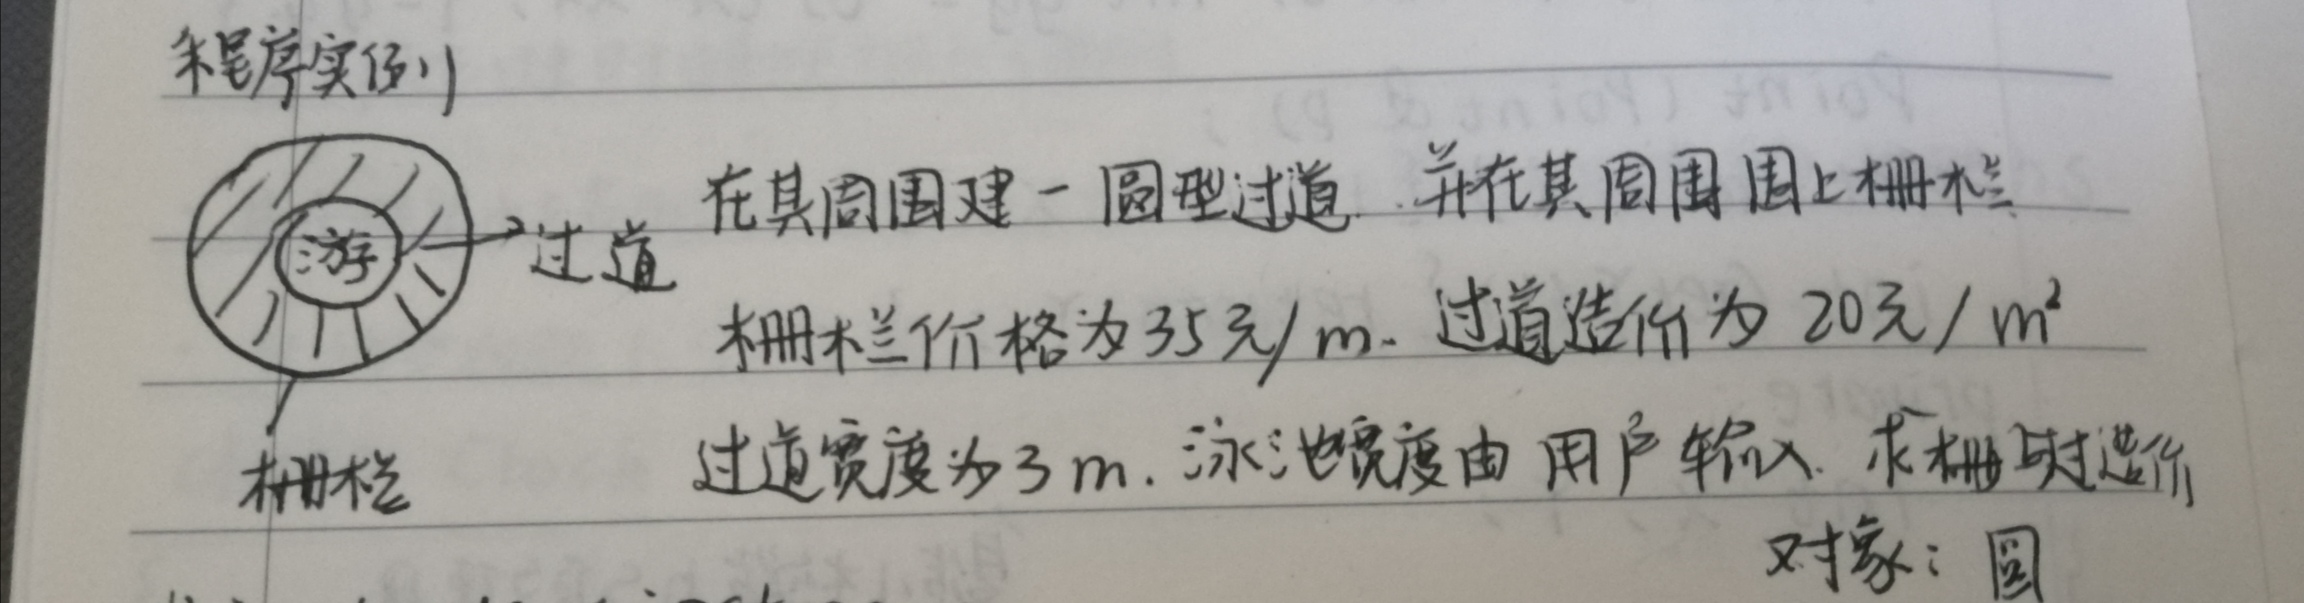 程序实例
在其周围建一圆型过道.并在其周围围上栅栏
游
过道
栅栏价格为35元/m.过道造价为20元/m²
栅栏
过道宽度为3m.泳池宽度由用户输入.求栅与过造价
对象:圆